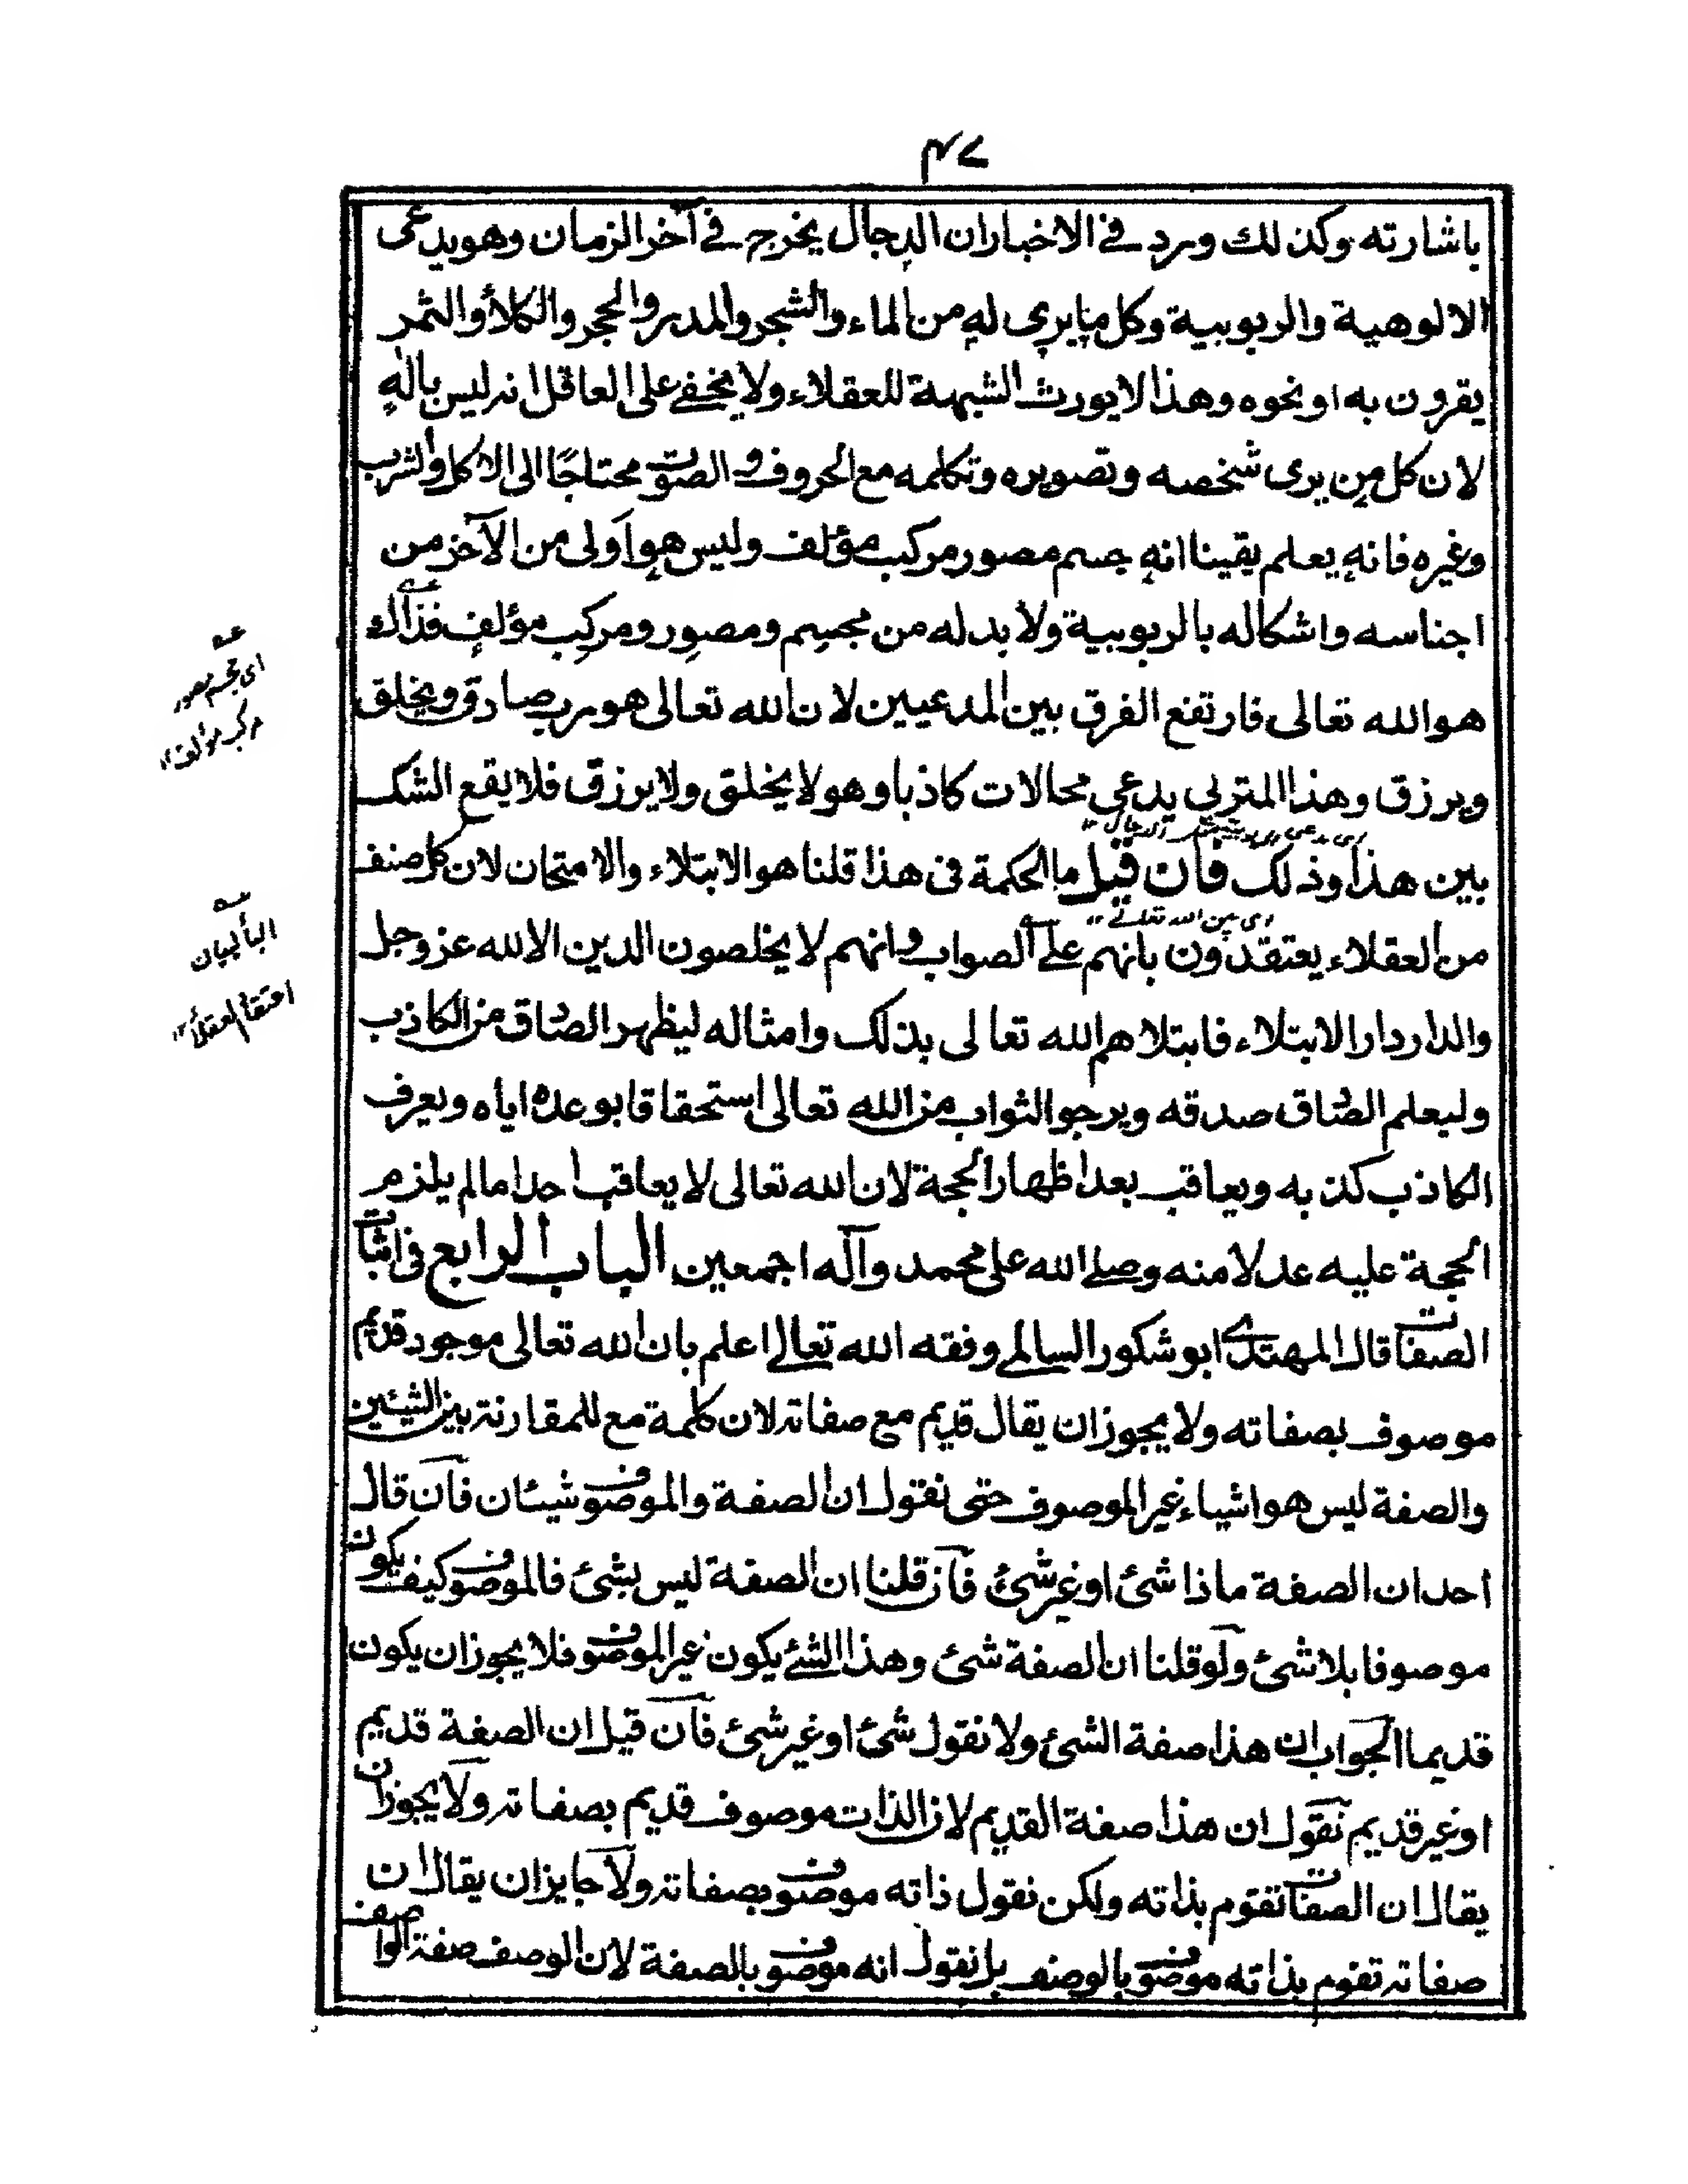 ۴۷
باشارته وكذلك ورد في الاخباران الدجال يخرج في آخرالزمان وهويدعى
الالوهية والربوبية وكل مايرى له من الماء والشجر والمدر والحجر والكلأ والثمر
يقرون به او نحوه وهذا لايورث الشبهة للعقلاء ولا يخفے على العاقل انه ليس باله
لان كل من يرى شخصه وتصويره وتكلمه مع الحروف والصوت محتاجًا الى الاكل والشرب
وغيره فانه يعلم يقينا انه جسم مصور مركب مؤلف وليس هو اولى من الآخر من
اجناسه واشكاله بالربوبية ولا بد له من مجسم ومصور ومركب مؤلف فذاك
هوالله تعالى فارتفع الفرق بين المدعيين لان الله تعالى هو رب صادق ويخلق
ويرزق وهذا المتربى يدعى محالات كاذبا وهو لا يخلق ولا يرزق فلا يقع الشك
بين هذا وذلك فان قيل ما الحكمة فى هذا قلنا هو الابتلاء والامتحان لان كل صنف
اى من الله تعالے ۱۲
من العقلاء يعتقدون بانهم علے الصواب وانهم لا يخلصون الدين الا لله عز وجل
والدار دار الابتلاء فابتلاهم الله تعالى بذلك وامثاله ليظهر الصادق من الكاذب
وليعلم الصادق صدقه ويرجوا الثواب من الله تعالى استحقاقا بوعده اياه ويعرف
الكاذب كذبه ويعاقب بعد اظهار الحجة لان الله تعالى لا يعاقب احدا مالم يلزم
الحجة عليه عدلا منه وصلے الله على محمد وآله اجمعين الباب الرابع فى اثبات
الصفات قال المهتدے ابو شكور السالمے وفقه الله تعالے اعلم بان الله تعالى موجود قديم
موصوف بصفاته ولا يجوزان يقال قديم مع صفاته لان كلمة مع للمقارنة بين الشيئين
والصفة ليس هو اشياء غير الموصوف حتى نقول ان الصفة والموصوف شيئان فان قال
احد ان الصفة ماذا شئ او غير شئ فان قلنا ان الصفة ليس بشئ فالموصوف كيف يكون
موصوفا بلا شئ ولو قلنا ان الصفة شئ وهذا الشئے يكون غير الموصوف فلا يجوزان يكون
قديما الجواب ان هذا صفة الشئ ولا نقول شئ او غير شئ فان قيل ان الصفة قديم
او غير قديم نقول ان هذا صفة القديم لان الذات موصوف قديم بصفاته ولا يجوزان
يقال ان الصفات تقوم بذاته ولكن نقول ذاته موصوف بصفاته ولا جايزان يقال ان
صفاته تقوم بذاته موصوف بالوصف بل نقول انه موصوف بالصفة لان الوصف صفة الواصف
اى مجسم مصور
مركب مؤلف ۱۲
البأ لبيان
اعتقاد العقلأ ۱۲